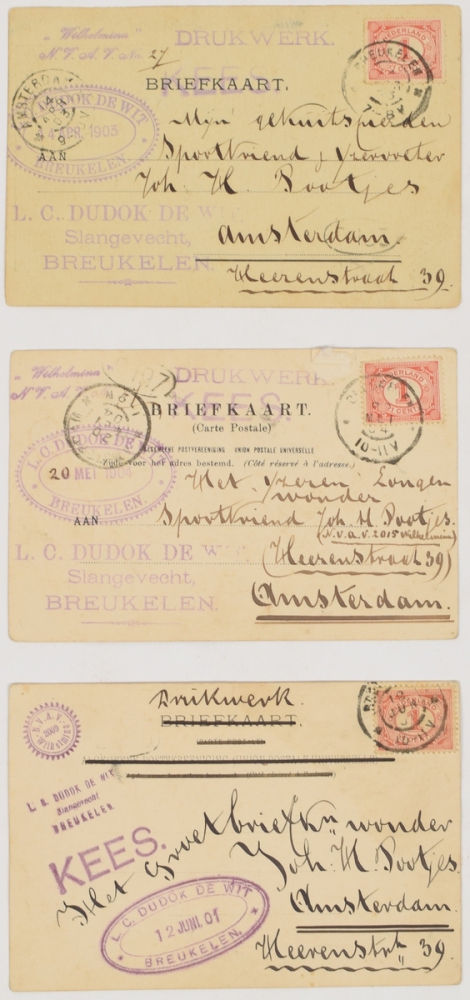 „Wilhelmina"
N.V.A.V. No 27
DRUKWERK.
KEES.
BRIEFKAART.
NEDERLAND
1
BREUKELEN
AMSTERDAM
L. C. DUDOK DE WIT
4 APR. 1903
BREUKELEN.
AAN
Mijn
Sportvriend
Joh. H. Pootjes
L. C. DUDOK DE WIT
Slangevecht,
BREUKELEN.
Amsterdam.
Heerenstraat 39.
„Wilhelmina"
N.V.A.V.
DRUKWERK.
KEES.
NEDERLAND
1
CENT
10-11V
BRIEFKAART.
(Carte Postale)
ALGEMEENE POSTVEREENIGING UNION POSTALE UNIVERSELLE
voor het adres bestemd. (Côté réservé à l'adresse.)
L. C. DUDOK DE WIT
20 MEI 1904
BREUKELEN.
Het yzeren Longen
wonder
AAN
Sportvriend Joh. H. Pootjes.
(N.V.A.V. 2015 Wilhelmina)
L. C. DUDOK DE WIT
(Heerenstraat 39)
Slangevecht,
BREUKELEN.
Amsterdam.
Drukwerk.
BRIEFKAART.
N.V.A.V.
L. C. DUDOK DE WIT
Slangevecht
BREUKELEN.
KEES.
Het Groot briefkn wonder
Joh. H. Pootjes.
Amsterdam.
L. C. DUDOK DE WIT
12 JUNI. 01
BREUKELEN.
Heerenstrt 39.